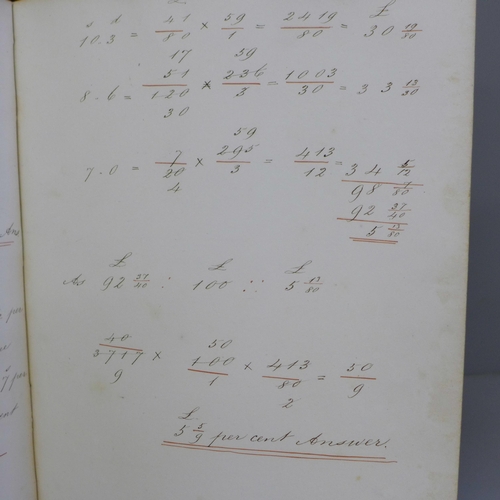 £ £
s d
10.3 = 41/80 × 59/1 = 2419/80 = 30 19/80
17 59
8.6 = 51/120 × 236/3 = 1003/30 = 33 13/30
30
59
7.0 = 7/20 × 295/3 = 413/12 = 34 5/12
4
98
92 37/40
5 13/80
£ £ £
As 92 37/40 : 100 :: 5 13/80
40/3717 × 100/1 × 413/80 = 50/9
50
9 2
£
5 5/9 per cent Answer.